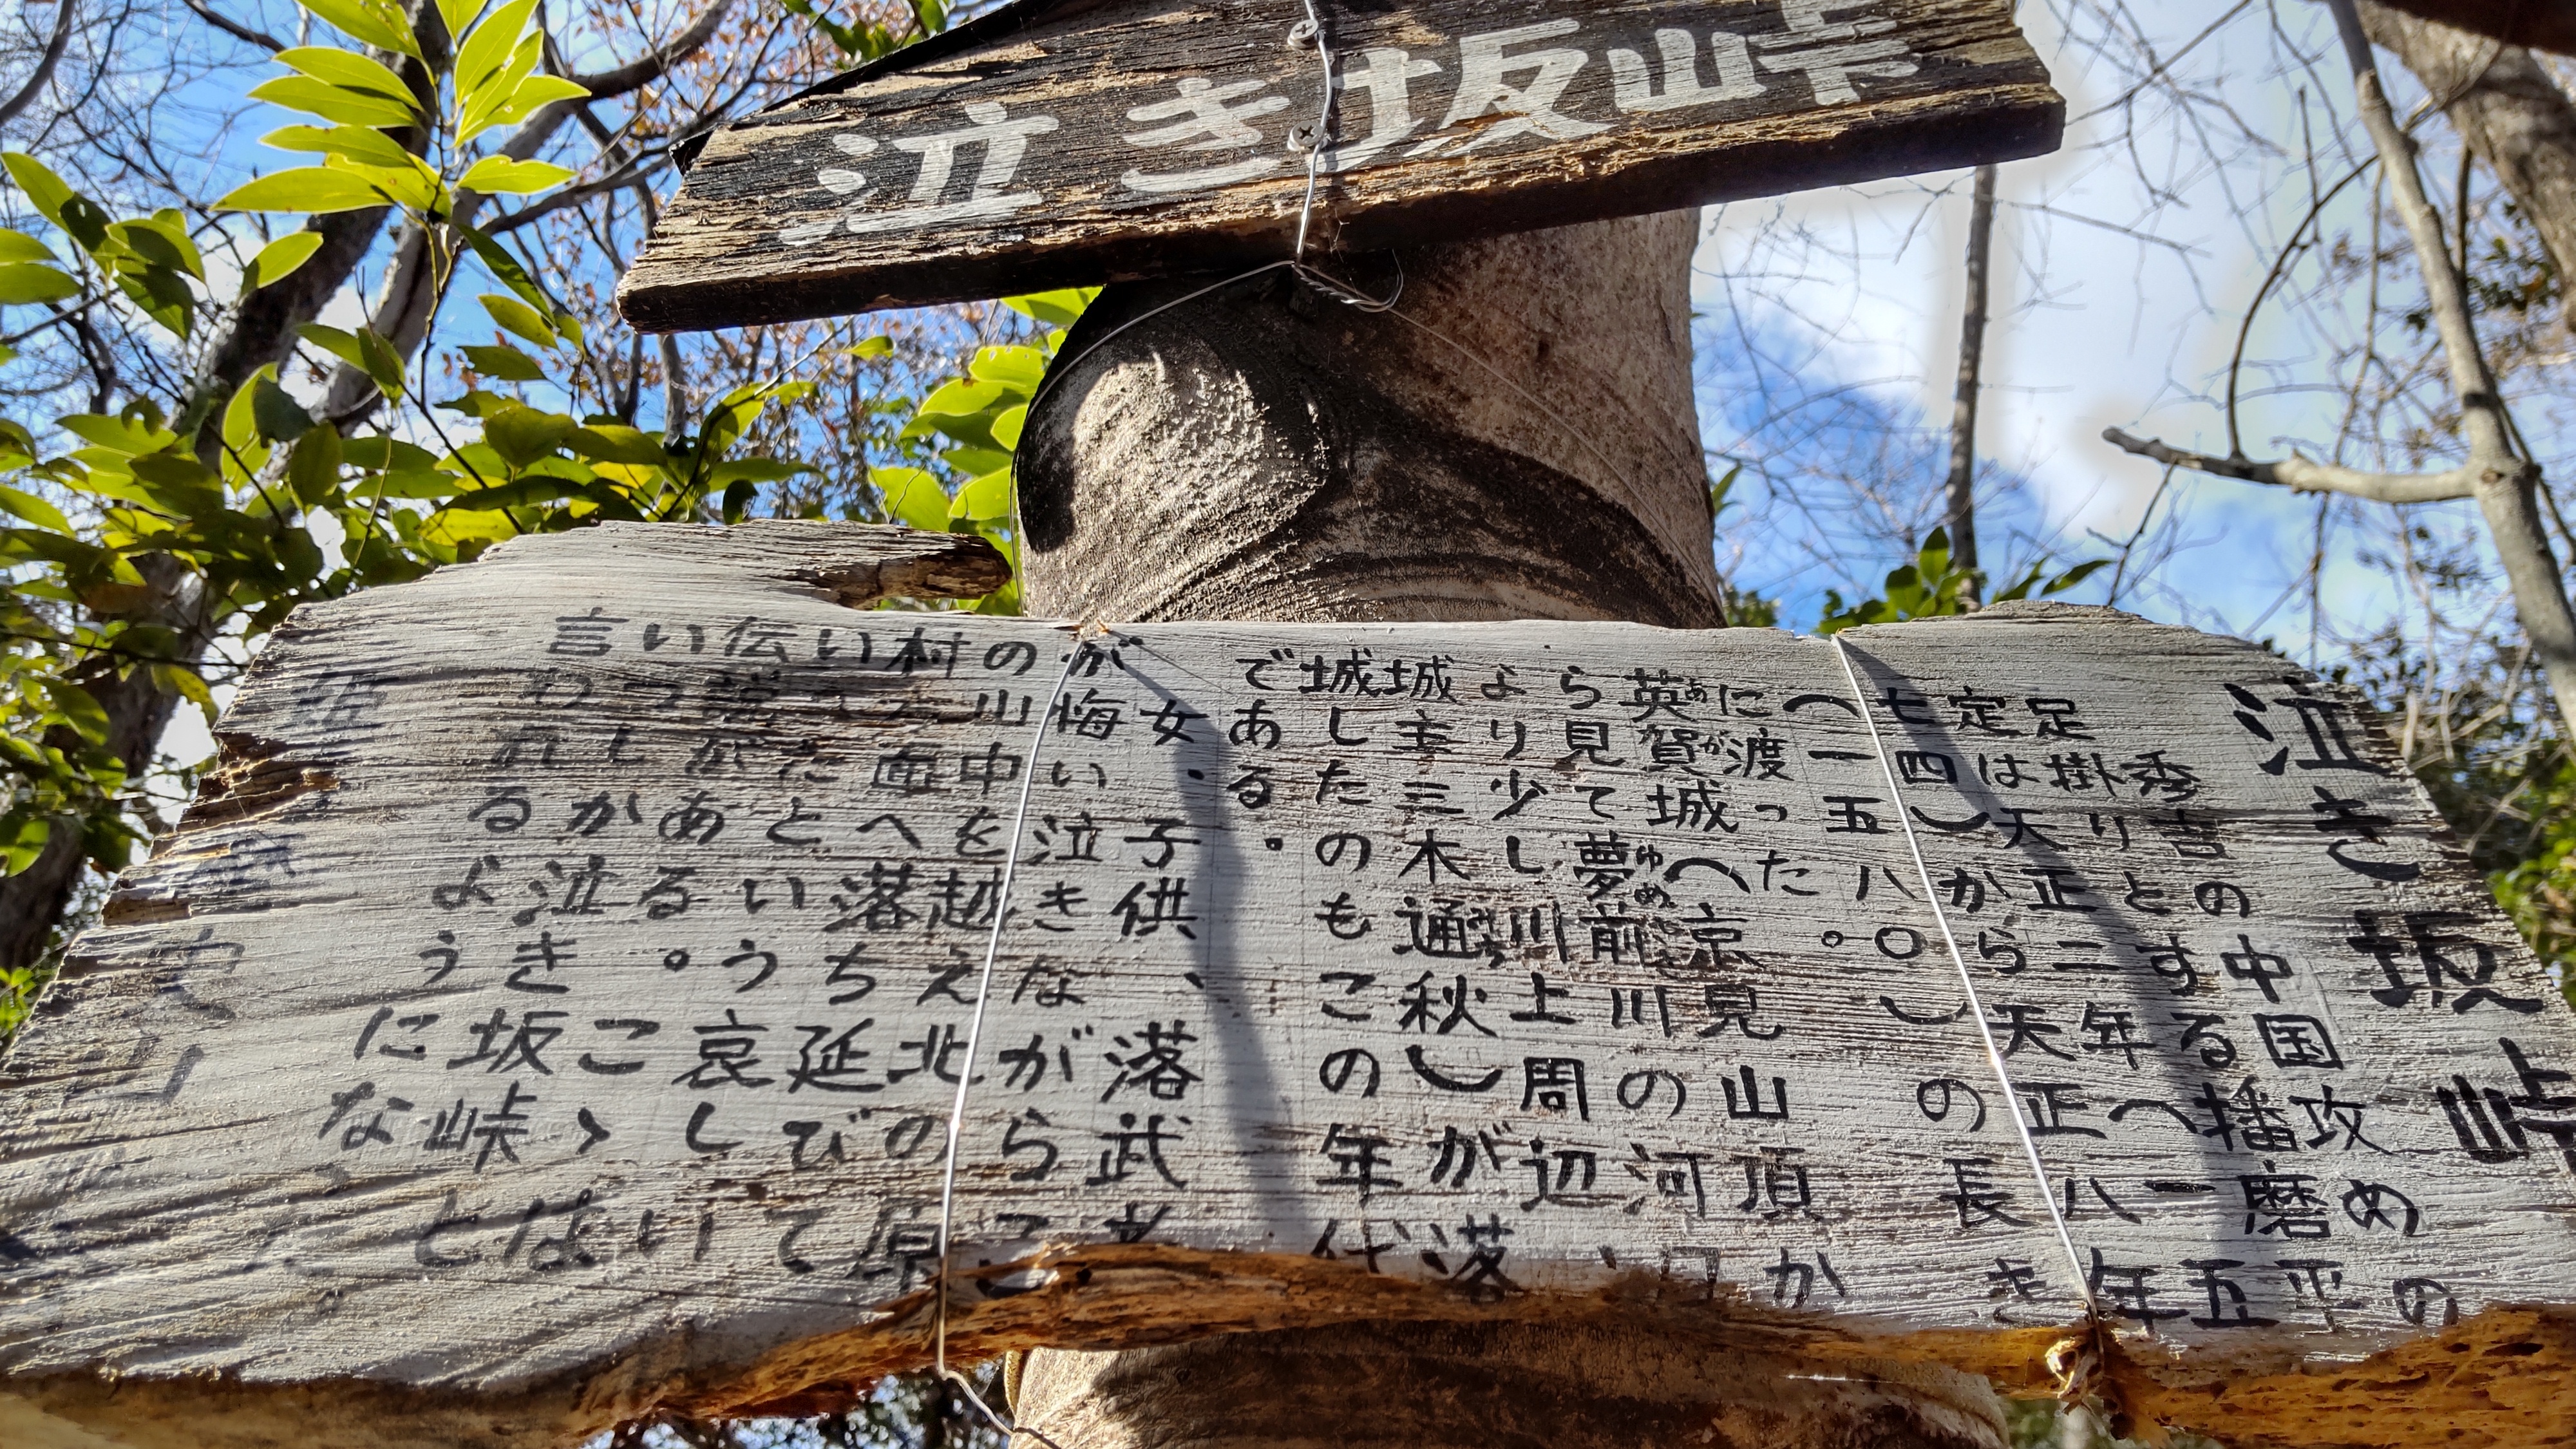 泣き坂峠
泣き坂峠
秀吉の中国攻めの
足掛りとする播磨平
定は天正二年(一五
七四)から天正八年
(一五八〇)の長き
に渡った。
英賀城へ京見山頂か
ら見て夢前川の河
より少し川上周辺
城主三木通秋)が落
城したのもこの年代
である。
女、子供、落武者
が悔い泣きながらこ
の山中を越え北の原
村へ落ち延びて
いったという哀しい
伝説がある。
いつしかこゝ
言われるようになと
泣き坂峠とは